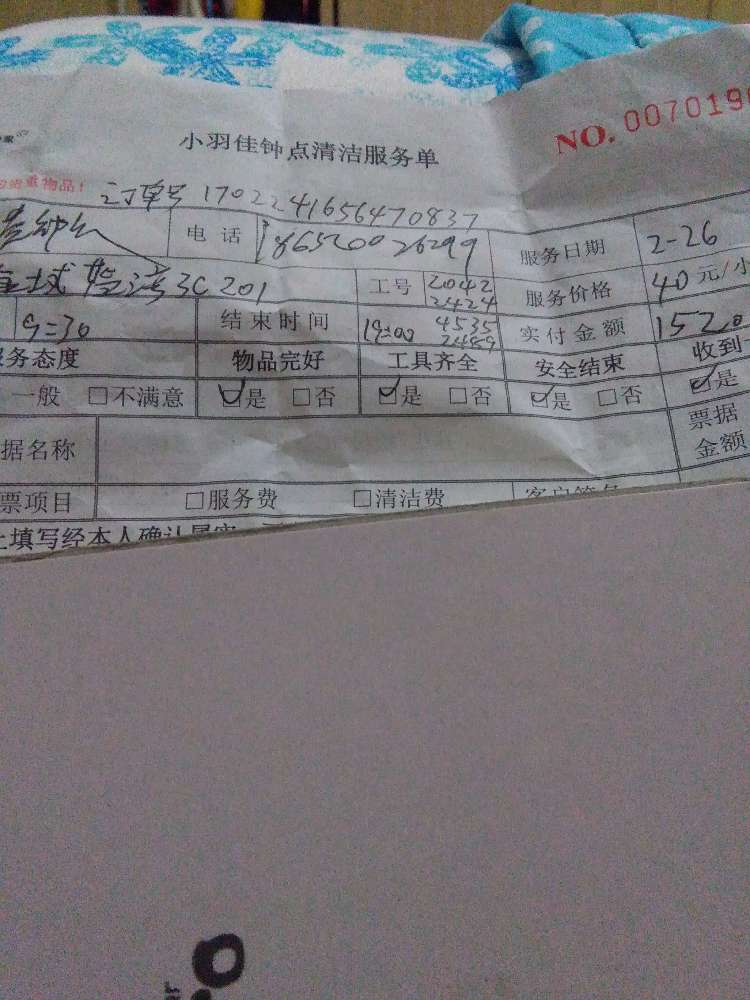 小羽佳钟点清洁服务单
NO. 007019
贵重物品!
订单号 1702241656470837
电话 186520026299 服务日期 2-26
3C 201 工号 2042 2424 服务价格 40元/小
9:30 结束时间 19:00 4535 2489 实付金额 1520
务态度 物品完好 工具齐全 安全结束 收到
一般 □不满意 ☑是 □否 ☑是 □否 ☑是 □否 ☑是
据名称 票据金额
票项目 □服务费 □清洁费 客户签名
上填写经本人确认属实